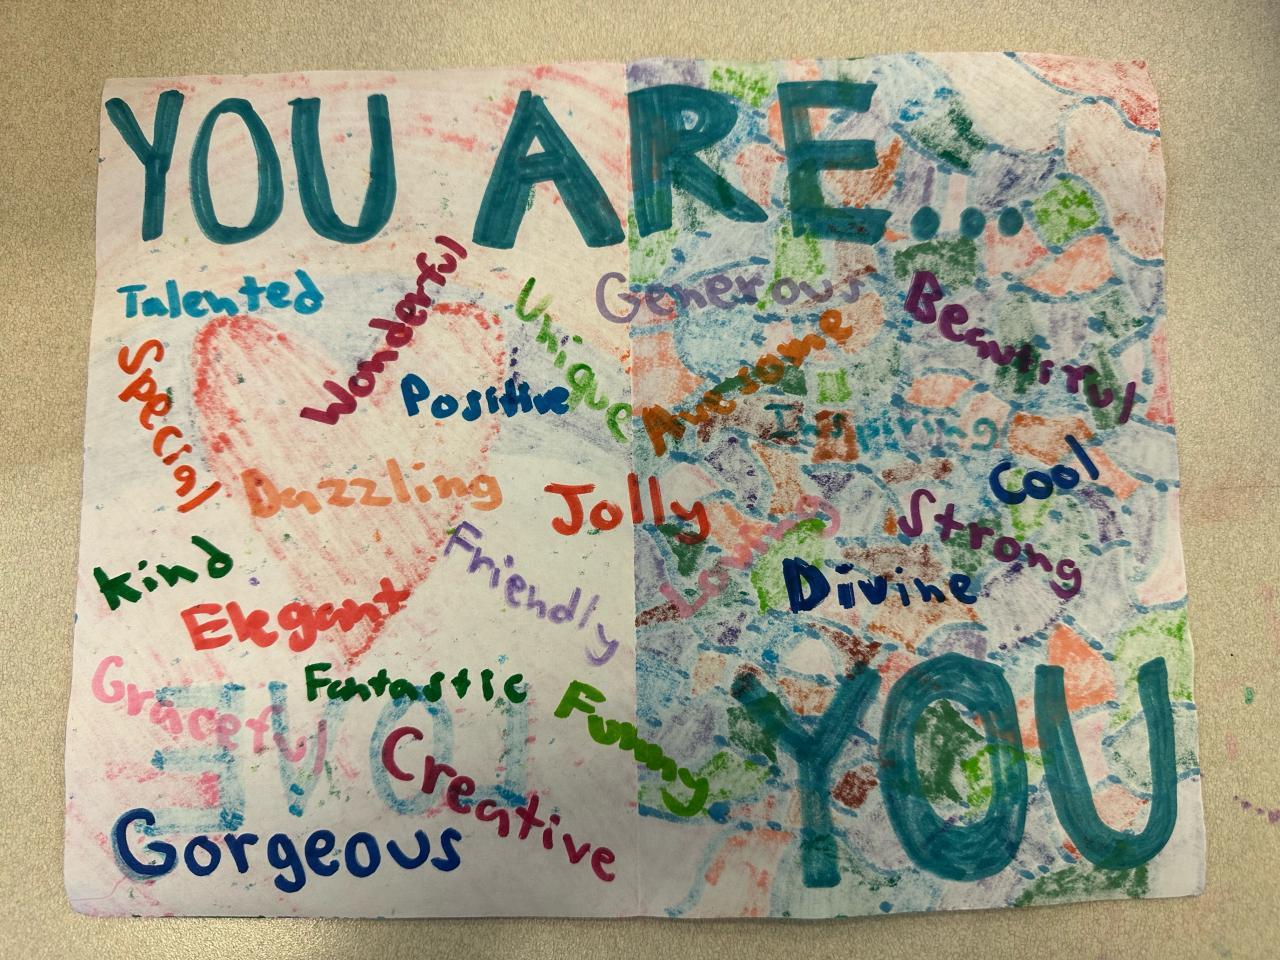 YOU ARE...
Talented
Wonderful
Unique
Generous
Beautiful
Special
Positive
Awesome
Inspiring
Cool
Dazzling
Jolly
Loving
Strong
Kind
Friendly
Divine
Elegant
Graceful
Fantastic
Funny
Creative
Gorgeous
YOU
LOVE